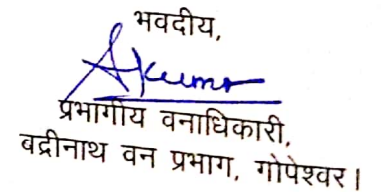 भवदीय,
AKumar
प्रभागीय वनाधिकारी,
बद्रीनाथ वन प्रभाग, गोपेश्वर।